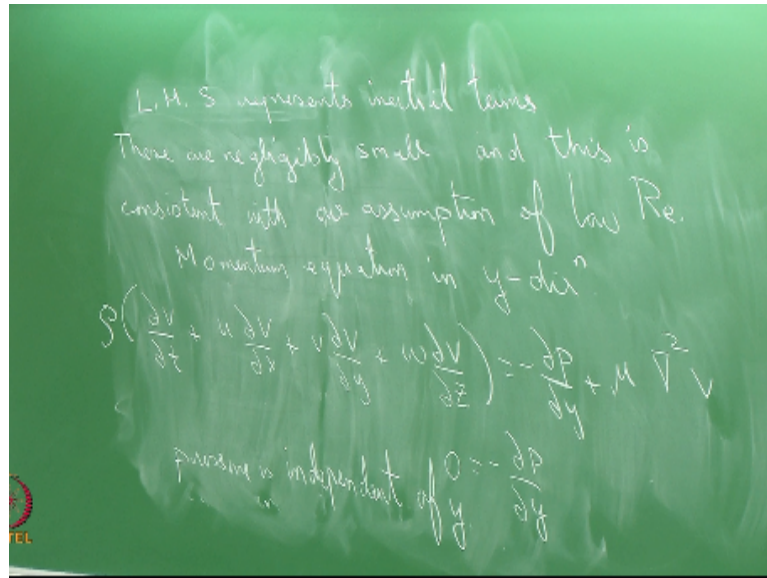 L.H.S represents inertial terms
These are negligibly small and this is
consistent with our assumption of low Re.
Momentum equation in y-dirⁿ
ρ(∂v/∂t + u ∂v/∂x + v ∂v/∂y + w ∂v/∂z) = -∂p/∂y + μ ∇²v
pressure is independent of y 0 = -∂p/∂y
TEL